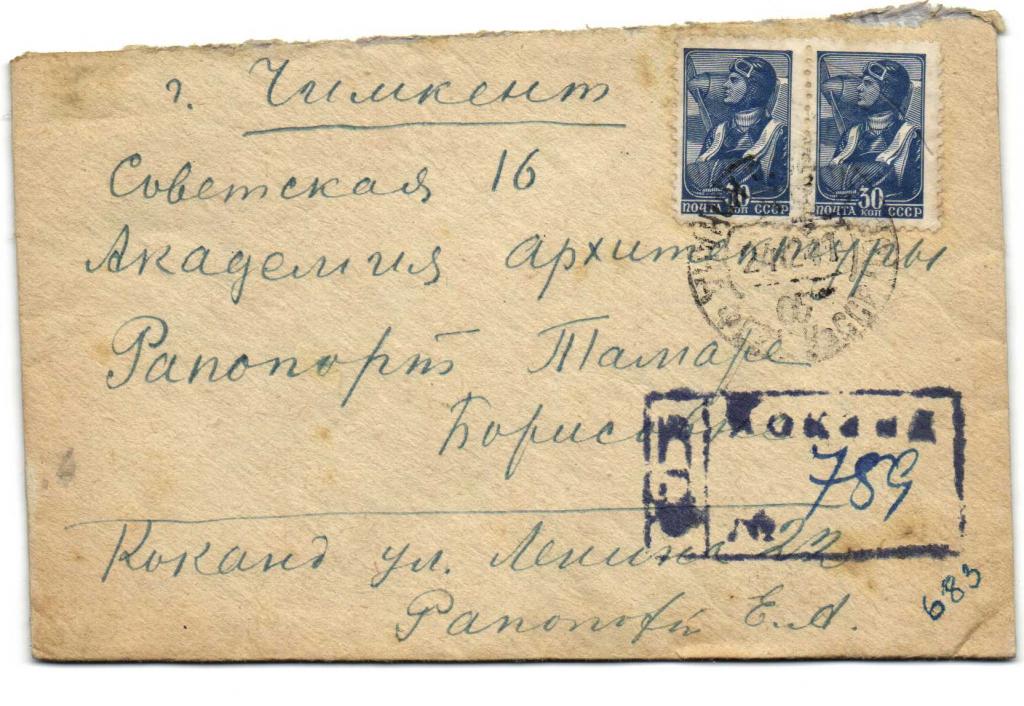 г. Чимкент
30
ПОЧТА КОП СССР
30
ПОЧТА КОП СССР
Советская 16
Академия архитектуры
Рапопорт Тамаре
Борисовне
Коканд
789
№
Коканд ул. Ленина 22
Рапопорт Е.А.
683